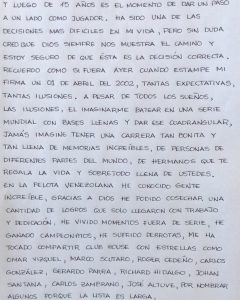 Y LUEGO DE 15 AÑOS ES EL MOMENTO DE DAR UN PASO
A UN LADO COMO JUGADOR, HA SIDO UNA DE LAS
DECISIONES MAS DIFICILES EN MI VIDA, PERO SIN DUDA
CREO QUE DIOS SIEMPRE NOS MUESTRA EL CAMINO Y
ESTOY SEGURO DE QUE ÉSTA ES LA DECISIÓN CORRECTA,
RECUERDO COMO SI FUERA AYER CUANDO ESTAMPE MI
FIRMA UN 01 DE ABRIL DEL 2002, TANTAS EXPECTATIVAS,
TANTAS ILUSIONES. A PESAR DE TODOS LOS SUEÑOS,
LAS ILUSIONES, EL IMAGINARME BATEAR EN UNA SERIE
MUNDIAL CON BASES LLENAS Y DAR ESE CUADRANGULAR,
JAMÁS IMAGINE TENER UNA CARRERA TAN BONITA Y
TAN LLENA DE MEMORIAS INCREÍBLES, DE PERSONAS DE
DIFERENTES PARTES DEL MUNDO, DE HERMANOS QUE TE
REGALA LA VIDA Y SOBRETODO LLENA DE USTEDES,
EN LA PELOTA VENEZOLANA HE CONOCIDO GENTE
INCREÍBLE, GRACIAS A DIOS HE PODIDO COSECHAR UNA
CANTIDAD DE LOGROS QUE SOLO LLEGARON CON TRABAJO
Y DEDICACIÓN, HE VIVIDO MOMENTOS FUERA DE SERIE, HE
GANADO CAMPEONATOS, HE SUFRIDO DERROTAS, ME HA
TOCADO COMPARTIR CLUB HOUSE CON ESTRELLAS COMO
OMAR VIZQUEL, MARCO SCUTARO, ROGER CEDEÑO, CARLOS
GONZÁLEZ, GERARDO PARRA, RICHARD HIDALGO, JOHAN
SANTANA, CARLOS ZAMBRANO, JOSÉ ALTUVE, POR NOMBRAR
ALGUNOS PORQUE LA LISTA ES LARGA,